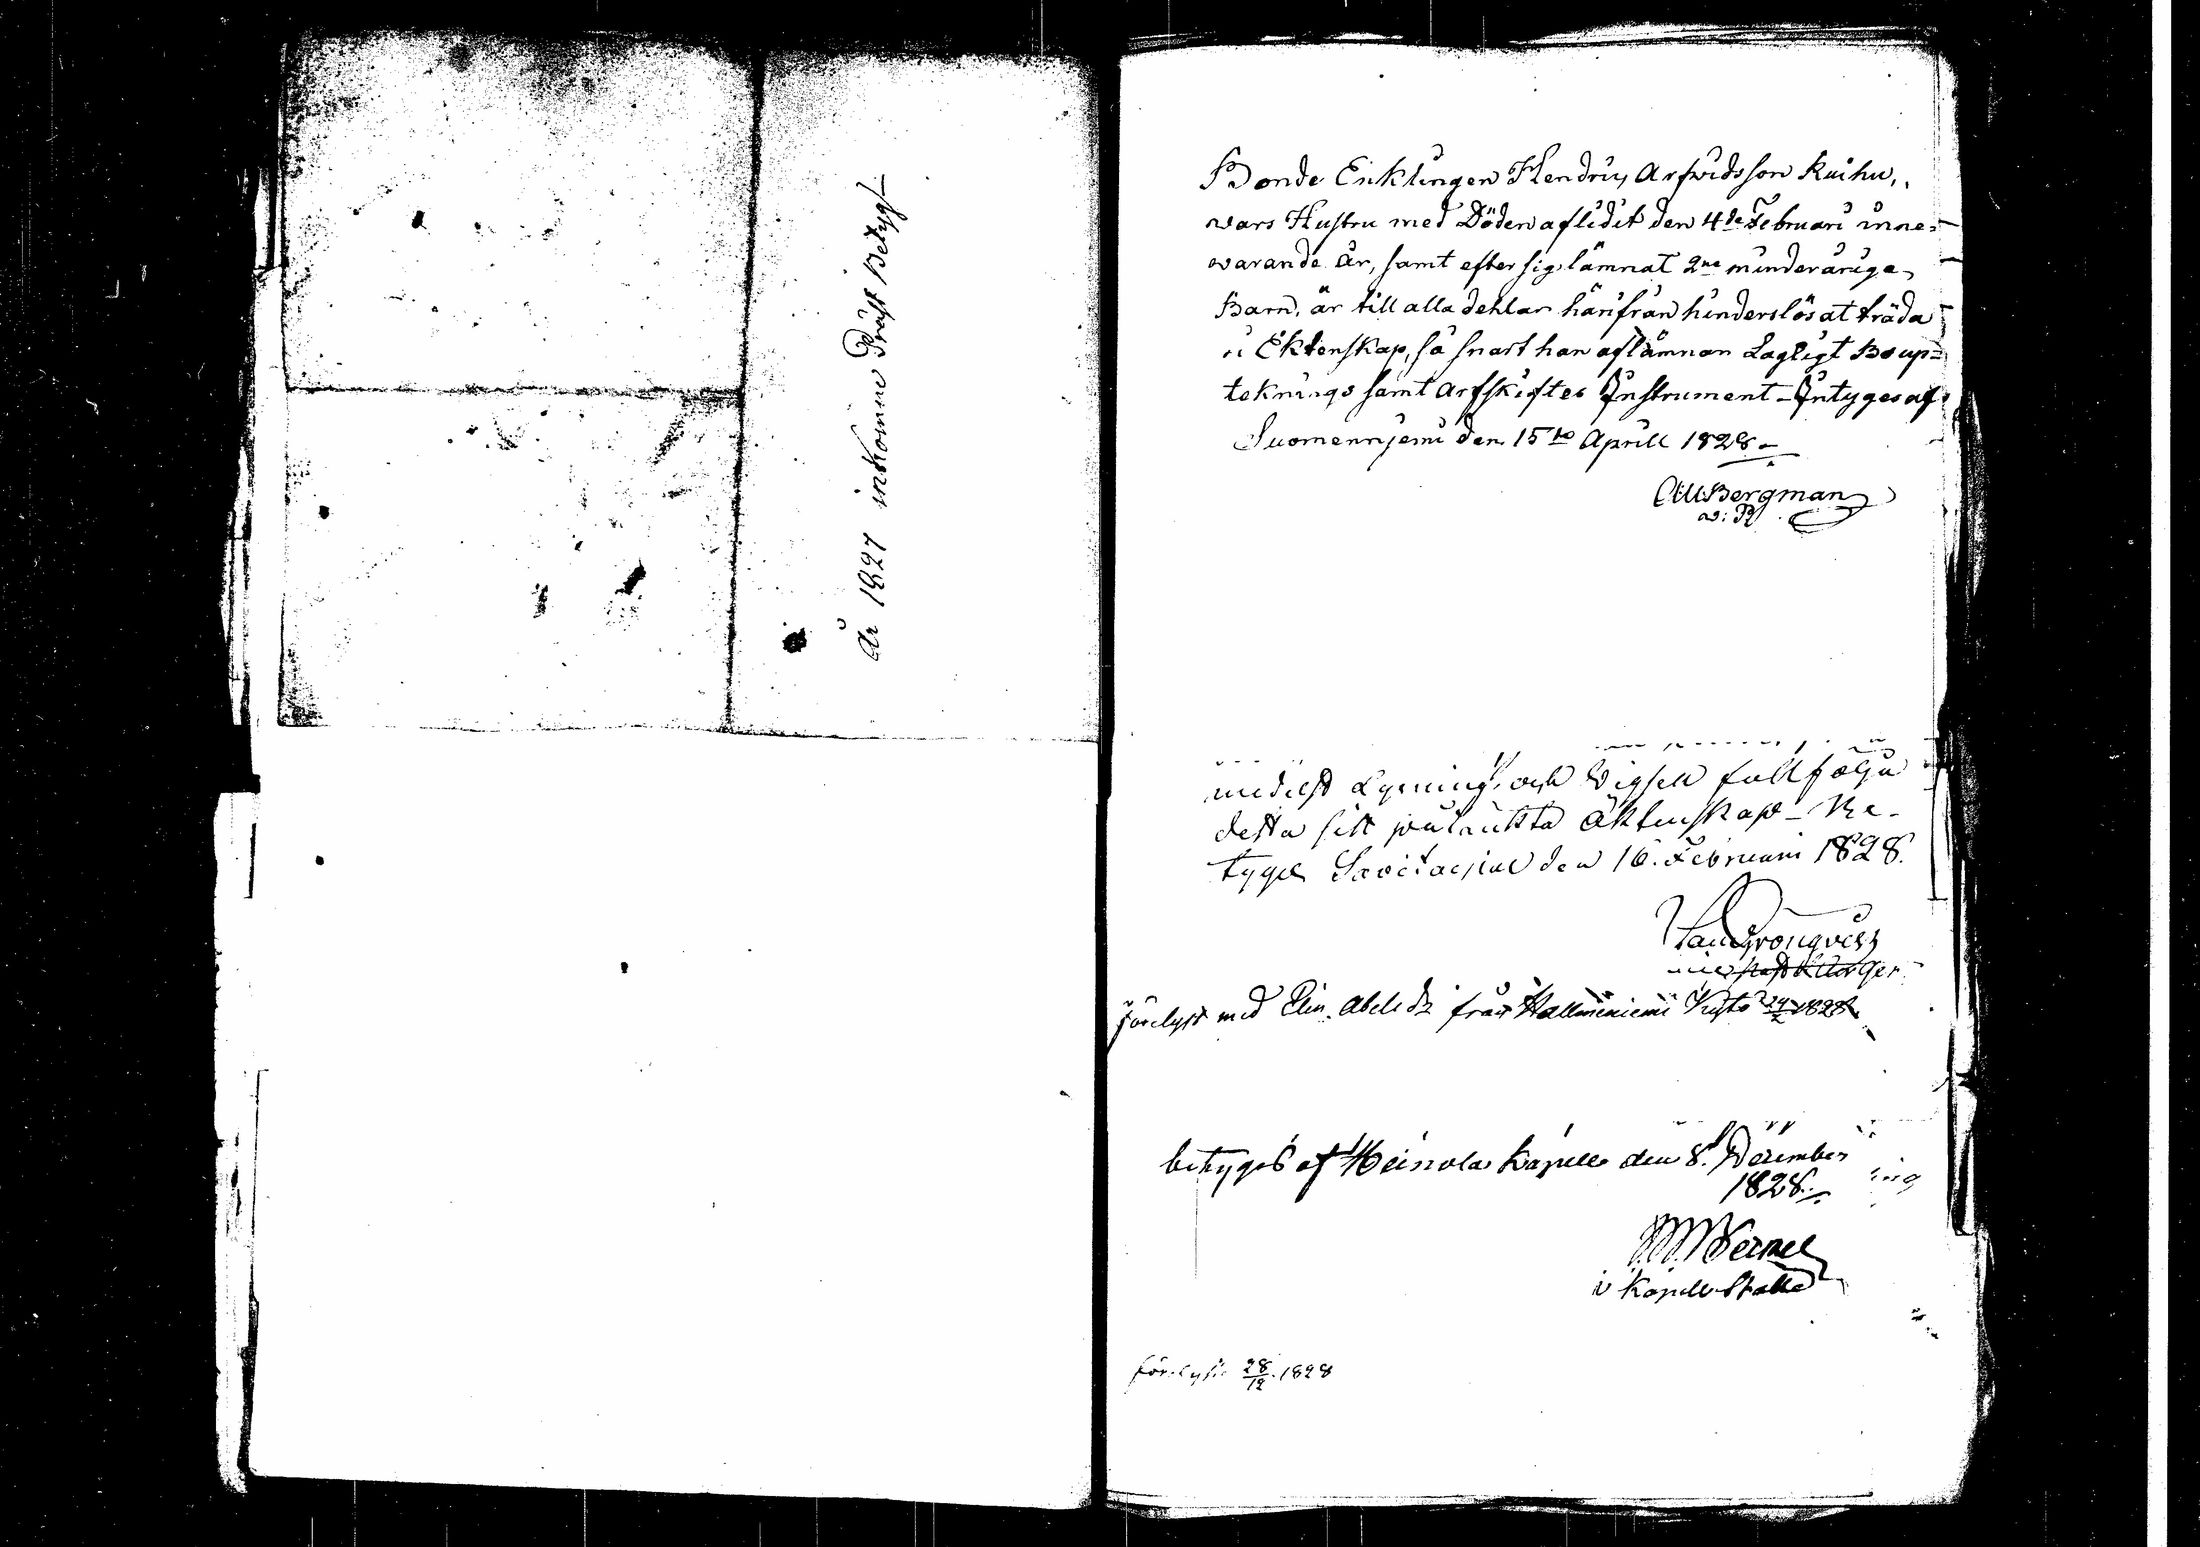 År 1827 inkomne Präst Betyg
Bonde Enklingen Hendric Arfvidsson Kuihu,
vars Hustru med Döden aflidit den 4de Februari inne=
varande år, samt efter sig lämnat 2ne minderåriga
Barn, är till alla dehlar härifrån hinderslös at träda
i Ektenskap, så snart han aflämnar Lagligt Boup=
teknings samt Arfskiftes Instrument _ Intygas af
Suomenniemi den 15de Aprill 1828 _
Bergman
v: P
medelst Lysning och Vigsell fullfölja
detta sitt påtänkta Äktenskap _ Be-
tygar Savitaipal den 16. Februari 1828.
förelyst med Elin Abels dr från Hallminiemi Kysto 24/2 1828
betygas af Heinola Kapell den 8. December
1828.
ing
i Kapell Stalle
förelyste 28/12 1828